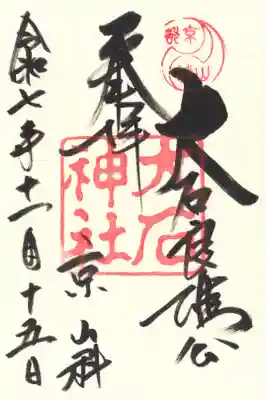 大石良雄公
奉拝
京山科
令和七年十一月十五日
大石神社
京都
山科